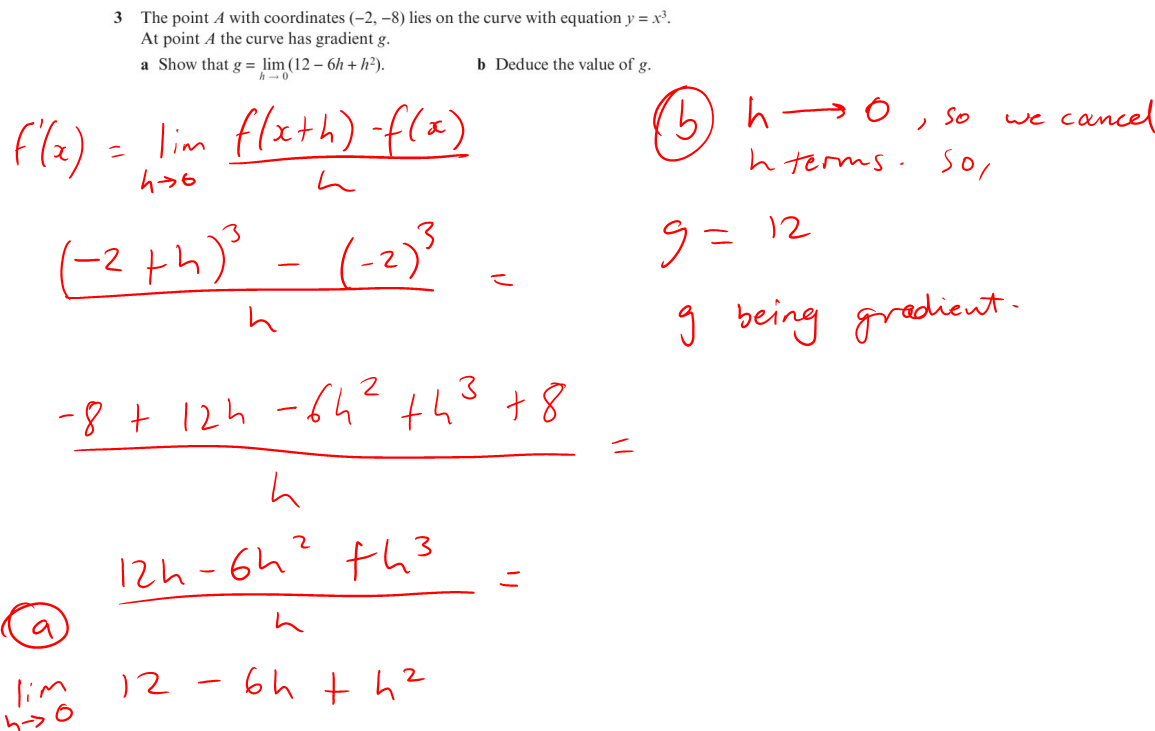 3 The point A with coordinates (–2, –8) lies on the curve with equation y = x³.
At point A the curve has gradient g.
a Show that g = lim(12 – 6h + h²). b Deduce the value of g.
h → 0
f'(x) = lim f(x+h) - f(x)
h→0 h
(-2 + h)³ - (-2)³ =
h
-8 + 12h - 6h² + h³ + 8 =
h
12h - 6h² + h³ =
h
a
lim 12 - 6h + h²
h→0
b h → 0, so we cancel
h terms. So,
g = 12
g being gradient.